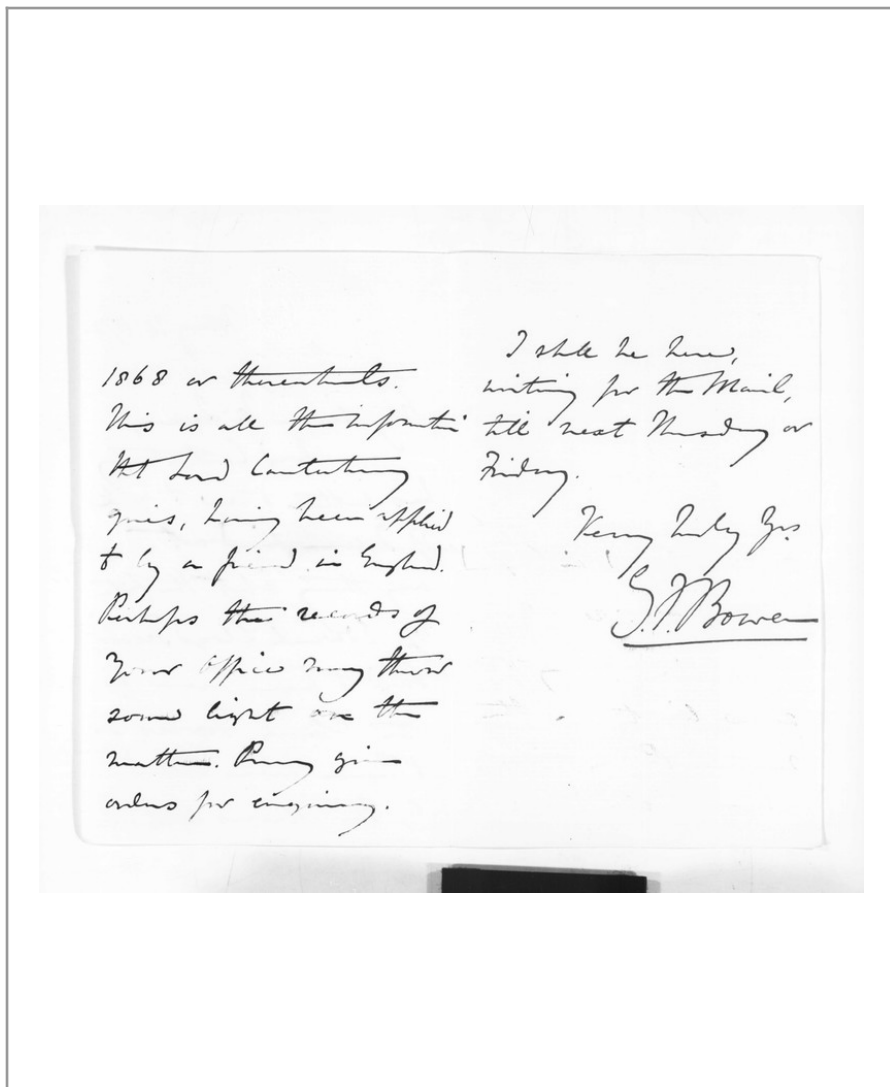 1868 or thereabouts.
This is all the information
tht Lord Canterbury
gives, having been applied
to by a friend in England.
Perhaps the records of
your office may throw
some light on the
matter. Pray give
orders for enquiry.
I shall be here,
writing for the Mail,
till next Thursday or
Friday.
Very truly Yrs
G.F.Bowen